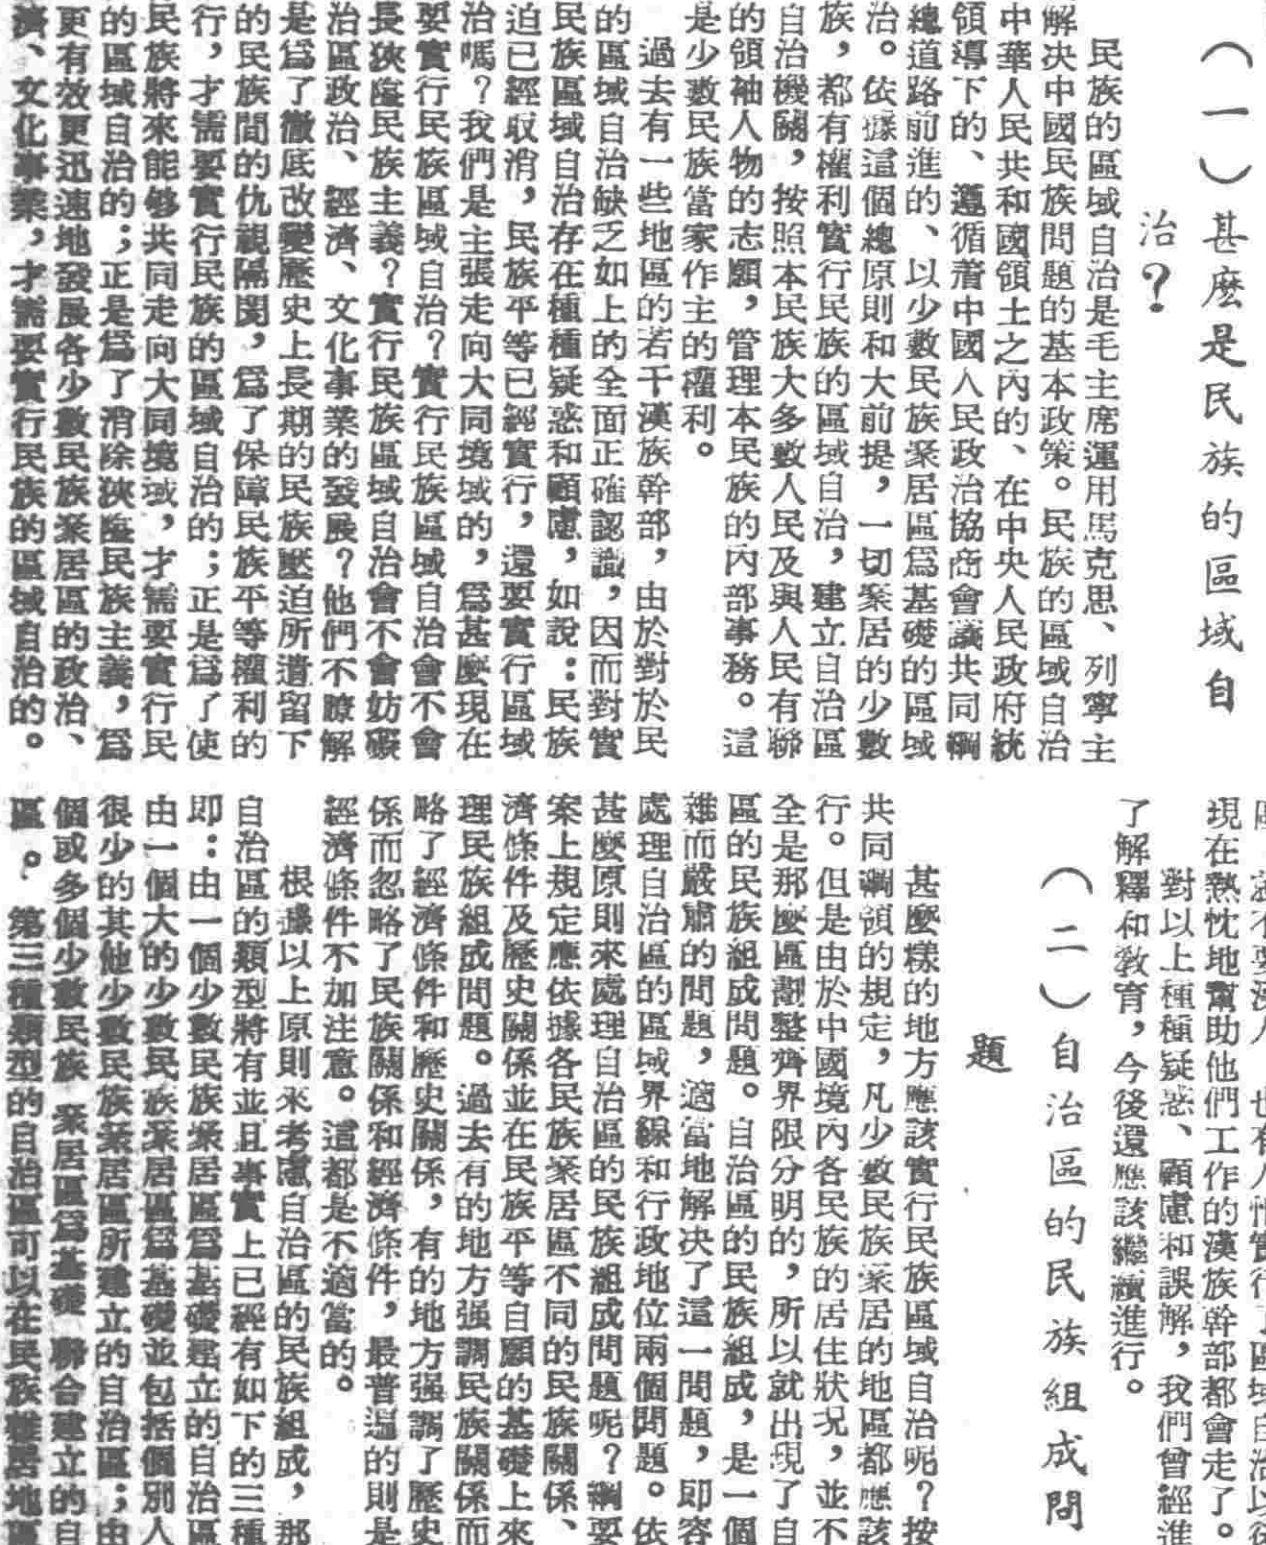 （一）甚麽是民族的區域自
治？
民族的區域自治是毛主席運用馬克思、列寧主
解决中國民族問題的基本政策。民族的區域自治
中華人民共和國領土之內的、在中央人民政府統
領導下的、遵循着中國人民政治協商會議共同綱
總道路前進的、以少數民族聚居區爲基礎的區域
治。依據這個總原則和大前提，一切聚居的少數
族，都有權利實行民族的區域自治，建立自治區
自治機關，按照本民族大多數人民及與人民有聯
的領袖人物的志願，管理本民族的內部事務。這
是少數民族當家作主的權利。
過去有一些地區的若干漢族幹部，由於對於民
的區域自治缺乏如上的全面正確認識，因而對實
民族區域自治存在種種疑惑和顧慮，如說：民族
迫已經取消，民族平等已經實行，還要實行區域
治嗎？我們是主張走向大同境域的，爲甚麼現在
要實行民族區域自治？實行民族區域自治會不會
長狹隘民族主義？實行民族區域自治會不會妨礙
治區政治、經濟、文化事業的發展？他們不瞭解
是爲了徹底改變歷史上長期的民族壓迫所遺留下
的民族間的仇視隔閡，爲了保障民族平等權利的
行，才需要實行民族的區域自治的；正是爲了使
民族將來能够共同走向大同境域，才需要實行民
的區域自治的；正是爲了消除狹隘民族主義，爲
更有效更迅速地發展各少數民族聚居區的政治、
濟、文化事業，才需要實行民族的區域自治的。
不要漢人，也有人怕實行了區域自治以後
現在熱忱地幫助他們工作的漢族幹部都會走了。
對以上種種疑惑、顧慮和誤解，我們曾經進
了解釋和教育，今後還應該繼續進行。
（二）自治區的民族組成問
題
甚麼樣的地方應該實行民族區域自治呢？按
共同綱領的規定，凡少數民族聚居的地區都應該
行。但是由於中國境內各民族的居住狀况，並不
全是那麼區劃整齊界限分明的，所以就出現了自
區的民族組成問題。自治區的民族組成，是一個
雜而嚴肅的問題，適當地解决了這一問題，即容
處理自治區的區域界線和行政地位兩個問題。依
甚麼原則來處理自治區的民族組成問題呢？綱要
案上規定應依據各民族聚居區不同的民族關係、
濟條件及歷史關係並在民族平等自願的基礎上來
理民族組成問題。過去有的地方强調民族關係而
略了經濟條件和歷史關係，有的地方强調了歷史
係而忽略了民族關係和經濟條件，最普遍的則是
經濟條件不加注意。這都是不適當的。
根據以上原則來考慮自治區的民族組成，那
自治區的類型將有並且事實上已經有如下的三種
即：由一個少數民族聚居區爲基礎建立的自治區
由一個大的少數民族聚居區爲基礎並包括個別人
很少的其他少數民族聚居區所建立的自治區；由
個或多個少數民族聚居區爲基礎聯合建立的自
區。第三種類型的自治區可以在民族雜居地區